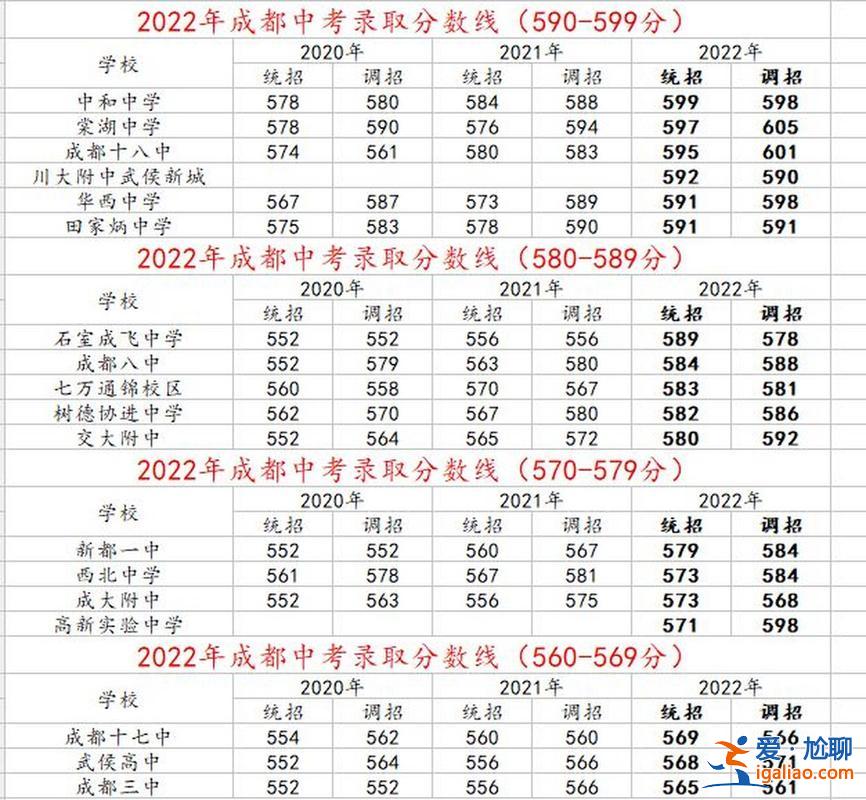 2022年成都中考录取分数线（590-599分）
学校 2020年 2021年 2022年
统招 调招 统招 调招 统招 调招
中和中学 578 580 584 588 599 598
棠湖中学 578 590 576 594 597 605
成都十八中 574 561 580 583 595 601
川大附中武侯新城 592 590
华西中学 567 587 573 589 591 598
田家炳中学 575 583 578 590 591 591
2022年成都中考录取分数线（580-589分）
学校 2020年 2021年 2022年
统招 调招 统招 调招 统招 调招
石室成飞中学 552 552 556 556 589 578
成都八中 552 579 563 580 584 588
七万通锦校区 560 558 570 567 583 581
树德协进中学 562 570 567 580 582 586
交大附中 552 564 565 572 580 592
2022年成都中考录取分数线（570-579分）
学校 2020年 2021年 2022年
统招 调招 统招 调招 统招 调招
新都一中 552 552 560 567 579 584
西北中学 561 578 567 581 573 584
成大附中 552 563 556 575 573 568
高新实验中学 571 598
2022年成都中考录取分数线（560-569分）
学校 2020年 2021年 2022年
统招 调招 统招 调招 统招 调招
成都十七中 554 562 560 560 569 566
武侯高中 552 564 556 566 568 571
成都三中 552 552 556 566 565 561
爱·尬聊
igaliao.com